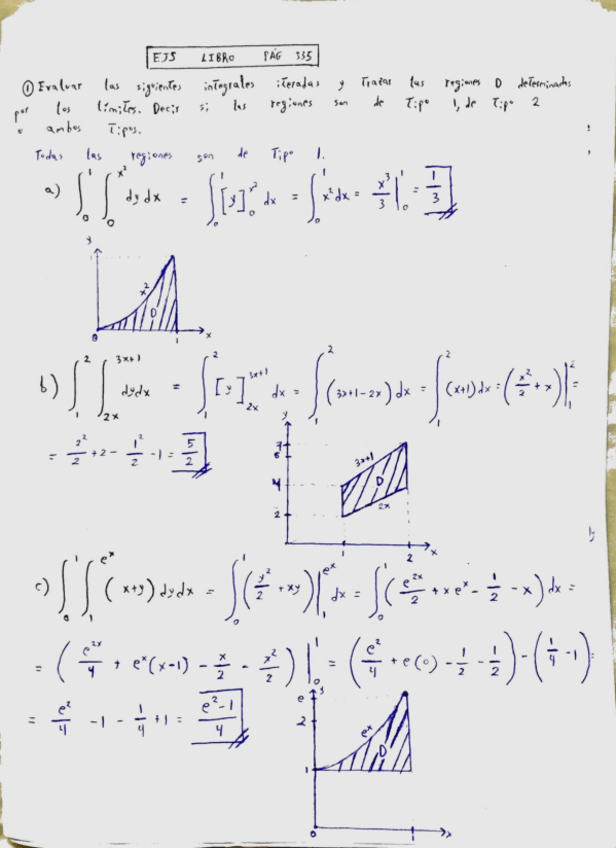 EJS LIBRO PÁG 335
① Evaluar las siguientes integrales iteradas y trazar las regiones D determinadas
por los límites. Decir si las regiones son de Tipo 1, de Tipo 2
o ambos Tipos.
Todas las regiones son de Tipo 1.
a) ∫₀¹ ∫₀^{x²} dy dx = ∫₀¹ [y]₀^{x²} dx = ∫₀¹ x² dx = x³/3 |₀¹ = 1/3
y
x²
D
0 1 x
b) ∫₁² ∫_{2x}^{3x+1} dy dx = ∫₁² [y]_{2x}^{3x+1} dx = ∫₁² (3x+1-2x) dx = ∫₁² (x+1) dx = (x²/2 + x) |₁² =
= 2²/2 + 2 - 1²/2 - 1 = 5/2
y
7
3x+1
4
D
2x
2
1 2 x
c) ∫₀¹ ∫₁^{eˣ} (x+y) dy dx = ∫₀¹ (y²/2 + xy) |₁^{eˣ} dx = ∫₀¹ (e^{2x}/2 + x eˣ - 1/2 - x) dx =
= (e^{2x}/4 + eˣ(x-1) - x/2 - x²/2) |₀¹ = (e²/4 + e(0) - 1/2 - 1/2) - (1/4 - 1) =
= e²/4 - 1 - 1/4 + 1 = e²-1/4
e y
2
eˣ
D
1
0 1 x